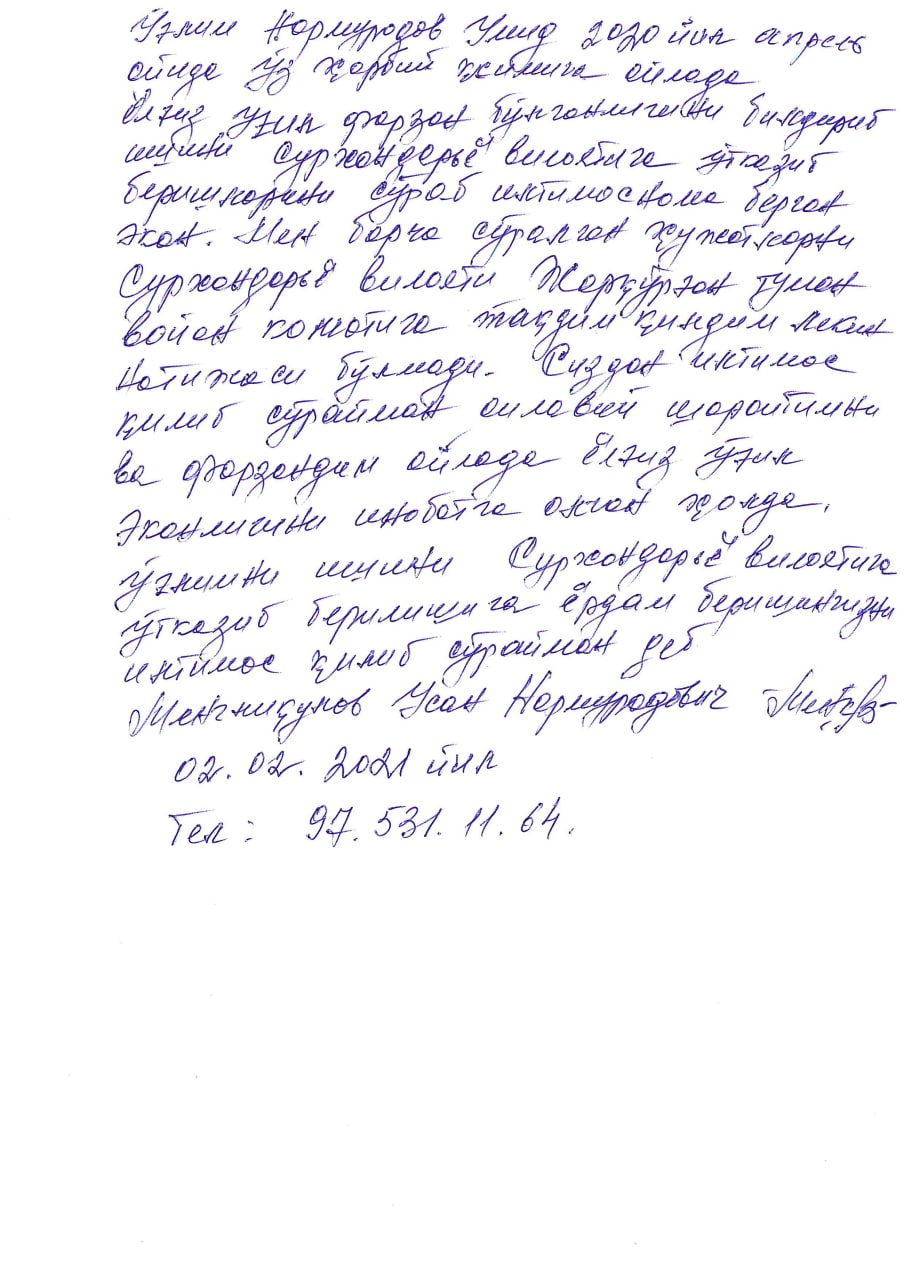 Ўғлим Нормуродов Умид 2020 йил апрель
ойида ўз ҳарбий қисмига ойлада
ёлғиз ўғил фарзан бўлганлигини билдириб
ишини Сурхондарьё вилоятига ўтказиб
беришларини сўраб илтимоснома берган
экан. Мен барча сўралган ҳужатларни
Сурхондарьё вилояти Жарқўрғон туман
воён коматига тақдим қилдим лекин
натижаси бўлмади. Сиздан илтимос
қилиб сўрайман оилавий шароитимни
ва фарзандим ойлада ёлғиз ўғил
эканлигини инобатга олган ҳолда,
ўғлимни ишини Сурхондарьё вилоятига
ўтказиб берилишига ёрдам беришингизни
илтимос қилиб сўрайман деб
Менгниқулов Усан Нормуродович
02.02.2021 йил
Тел: 97.531.11.64.